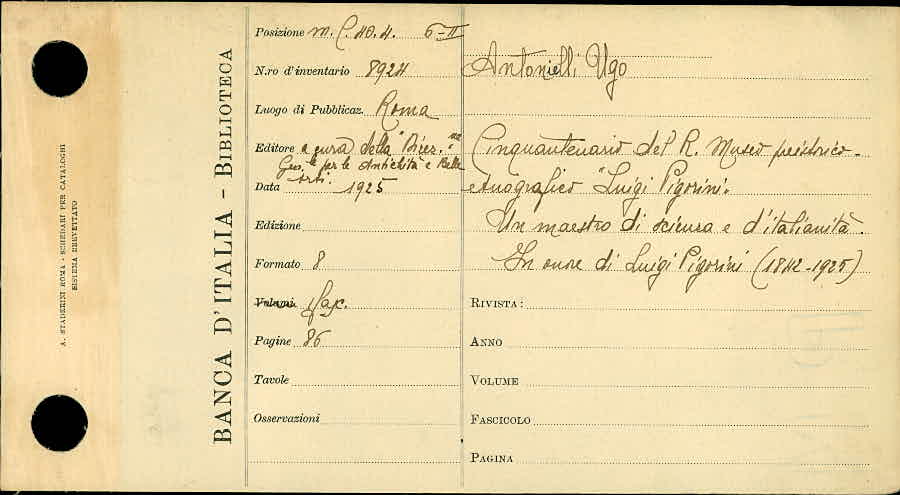 A. STADERINI ROMA - SCHEDARI PER CATALOGHI
SISTEMA BREVETTATO
BANCA D'ITALIA - BIBLIOTECA
Posizione m. C. 40. 4. 6-II
N.ro d'inventario 8924
Luogo di Pubblicaz. Roma
Editore a cura della "Direz.ne
Gen.le per le Antichità e Belle
Arti.
Data 1925
Edizione
Formato 8
Volumi fasc.
Pagine 86
Tavole
Osservazioni
Antonielli, Ugo
Cinquantenario del R. Museo preistorico-
etnografico "Luigi Pigorini".
Un maestro di scienza e d'italianità.
In onore di Luigi Pigorini (1842-1925)
RIVISTA:
ANNO
VOLUME
FASCICOLO
PAGINA